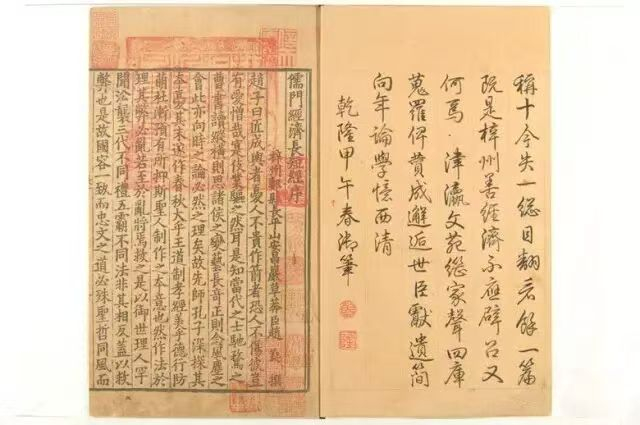 稱十今失一總目翻餘一篇
既是梓州善經濟不應辟召又
何焉津瀛文苑繼家聲四庫
蒐羅俾贊成邂逅世臣獻遺簡
向年論學憶西清
乾隆甲午春御筆
儒門經濟長短經序
梓州郪縣長平山安昌巖草莽臣趙蕤撰
趙子曰匠成輿者憂人不貴作箭者恐人不傷彼豈
有愛憎哉寔伎業驅之然耳是知當代之士馳騖之
曹書讀縱橫則思諸侯之變藝長奇正則念風塵之
會此亦向時之論必然之理矣故先師孔子深探其
本憂其末遂作春秋大乎王道制孝經美乎德行防
萌杜漸預有所抑斯聖人制作之本意也然作法於
理其弊必亂若至於亂將焉救之是以御世理人罕
聞沿襲三代不同禮五霸不同法非其相反蓋以救
弊也是故國容一致而忠文之道必殊聖哲同風而